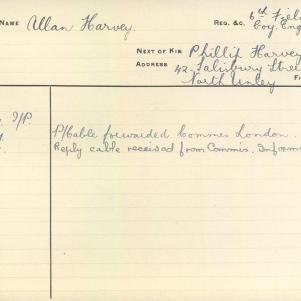 NAME Allan Harvey. REG. &C. 6th Fiel
Coy. Eng
NEXT OF KIN Phillip Harvey
ADDRESS 42. Salisbury Stree
North Unley
P/Cable forwarded Commis London.
Reply cable received from Commis. Inform